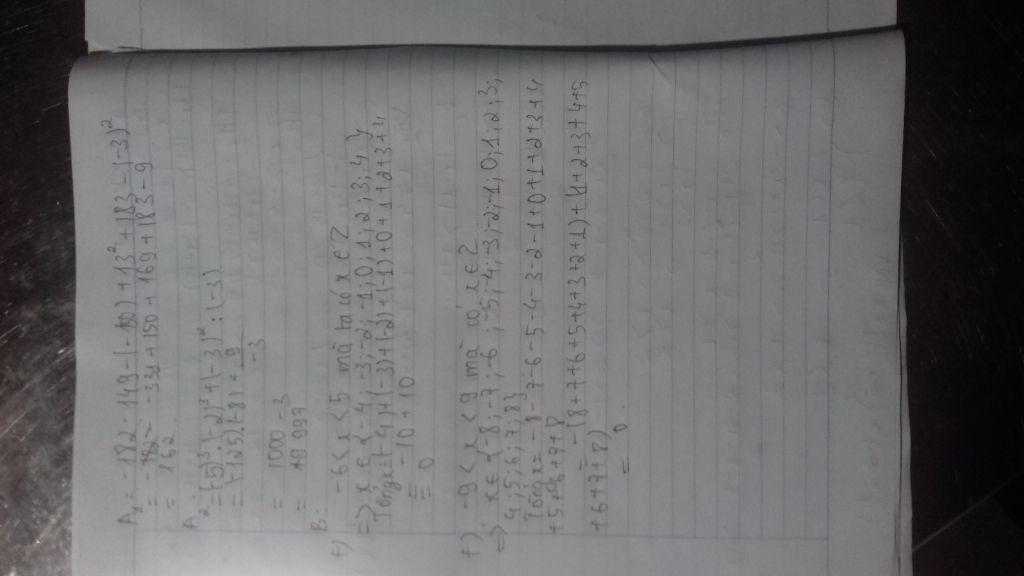 A₁ = -182 - 149 - (-150) + 13² + 183 - (-3)²
= -331 + 150 + 169 + 183 - 9
= 162.
A₂ = (-5)³.(-2)³ + (-3)² : (-3)
= (-125).(-8) + 9/-3
= 1000 - 3
= 997
B:
-6 < x < 5 mà ta có x ∈ Z
=> x ∈ {-4; -3; -2; -1; 0; 1; 2; 3; 4}
Tổng x = (-4) + (-3) + (-2) + (-1) + 0 + 1 + 2 + 3 + 4
= -10 + 10
= 0
f) -9 < x < 9 mà có x ∈ Z
=> x ∈ {-8; -7; -6; -5; -4; -3; -2; -1; 0; 1; 2; 3;
4; 5; 6; 7; 8}
Tổng x = -8 - 7 - 6 - 5 - 4 - 3 - 2 - 1 + 0 + 1 + 2 + 3 + 4
+ 5 + 6 + 7 + 8
= -(8 + 7 + 6 + 5 + 4 + 3 + 2 + 1) + (1 + 2 + 3 + 4 + 5
+ 6 + 7 + 8)
= 0.